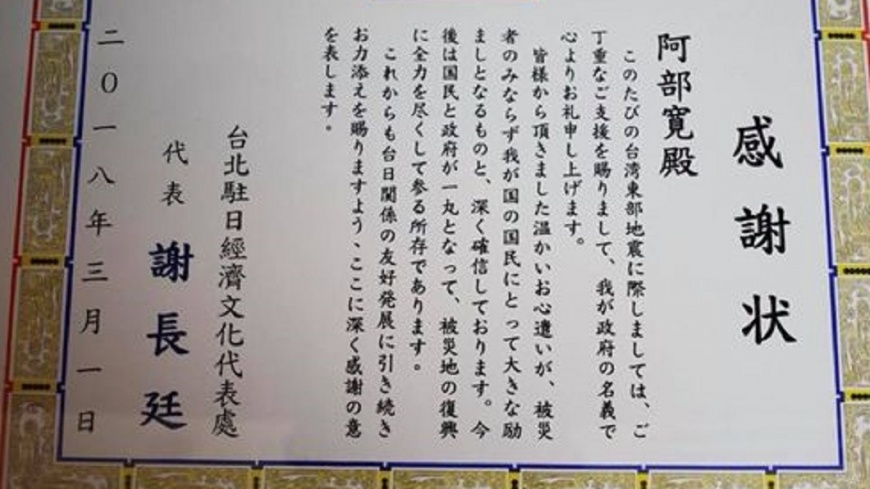 感謝状
阿部寛殿
このたびの台湾東部地震に際しましては、ご
丁重なご支援を賜りまして、我が政府の名義で
心よりお礼申し上げます。
皆様から頂きました温かいお心遣いが、被災
者のみならず我が国の国民にとって大きな励
ましとなるものと、深く確信しております。今
後は国民と政府が一丸となって、被災地の復興
に全力を尽くして参る所存であります。
これからも台日関係の友好発展に引き続き
お力添えを賜りますよう、ここに深く感謝の意
を表します。
台北駐日經濟文化代表處
代表 謝長廷
二０一八年三月一日